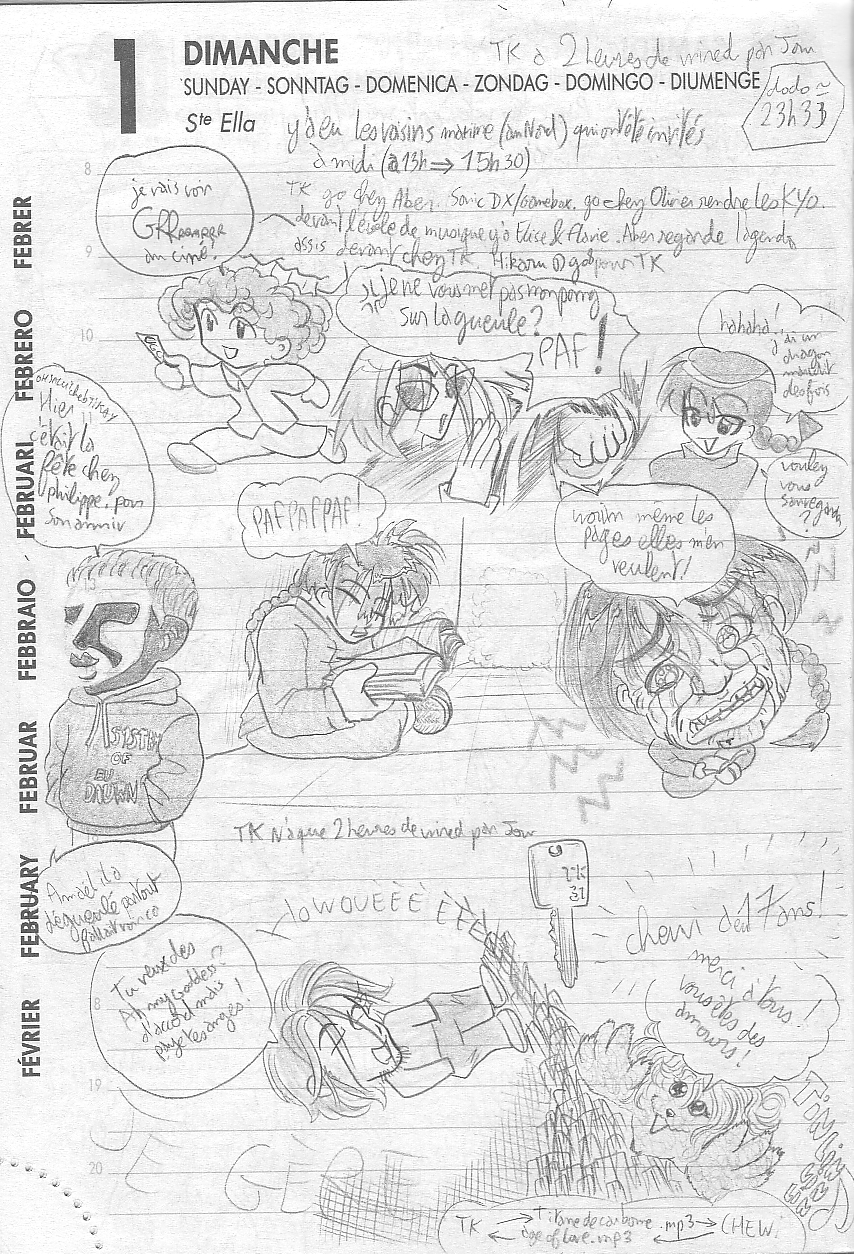 1
DIMANCHE
SUNDAY - SONNTAG - DOMENICA - ZONDAG - DOMINGO - DIUMENGE
Ste Ella
TK a 2 heures de mired par Jour
dodo ~
23h33
y'a eu les voisins marine (du Nord) qui ont été invités
à midi (à 13h ⇒ 15h30)
TK go chez Aben. Sonic DX/Gamebox. go chez Olivier rendre les KYO.
devant l'école de musique y'a Elise & Flavie. Aben regarde l'agenda
assis devant chez TK. Hikaru ① go pour TK
je vais voir
GRRR
au ciné!
si je ne vous met pas mon poing
sur la gueule?
PAF!
hahaha!
j'ai un
dragon
maudit
des fois
voulez
vous
sauvegarder
?
Hier
c'était la
fête chez
philippe, pour
son anniv
PAF PAF PAF!
même les
pages elles m'en
veulent!
SYSTEM
OF
EU
DAUWN
TK N'a que 2 heures de mired par Jour
Amaël il a
dégueulé partout
Tu veux des
Ah my Goddess?
d'accord mais
paye tes anges!
WOUÈÈÈÈÈÈ
TK
31
chewi déjà 17 ans!
merci à tous!
vous êtes des
amours!
JE GÈRE
TK → Titane de carbone .mp3 → CHEWI
← age of love .mp3 ←
8
9
10
8
19
20
FÉVRIER FEBRUARY FEBRUAR FEBBRAIO FEBRUARI FEBRERO FEBRER